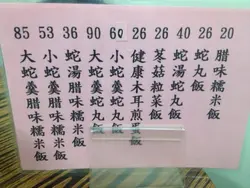 85 53 36 90 60 26 26 40 26 20
臘味糯米飯
蛇丸飯
蛇湯蛇丸飯
菇粒菜飯
健康木耳煎蛋飯
小蛇羹蛇丸飯
大蛇羹蛇丸飯
蛇湯臘味糯米飯
小蛇羹臘味糯米飯
大蛇羹臘味糯米飯